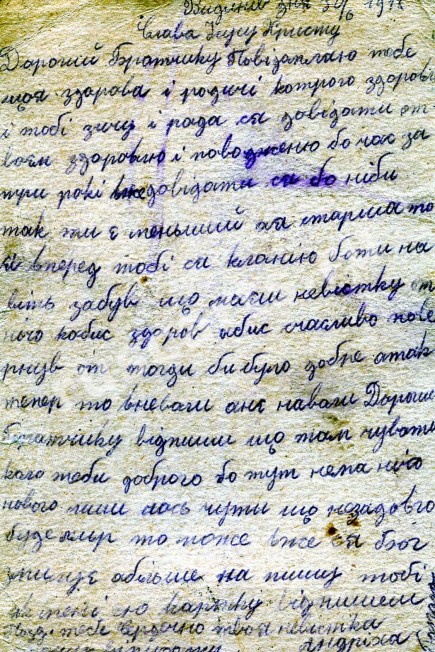 Видинів дня 30/6 191
Слава Ісусу Христу
Дорогий Братчику Повідамлаю тебе
щоя здорова і родичі котрого здоровлі
і тобі зичу і рада ся довідати от
воєм здоровлю і поводженю бо час за
три рокі довідати ся бо ніби
так ти є меньший а я старша то
я вперед тобі ся кланію боти на
віть забув що маєш невістку от
нечо кобис здоров абис счасливо пове
рнув от тогди би було добре атак
тепер то вневали ані навали Дороги
Братчику відпиши що там чувати
коло тебе доброго бо тут нема нечо
нового лиши аось чути що незадовго
буде мир то може вже ся бог
змилує абільше на пишу тобі
як мені сю картку відпишеш
тебе сердечно твоя невістка
Андріха